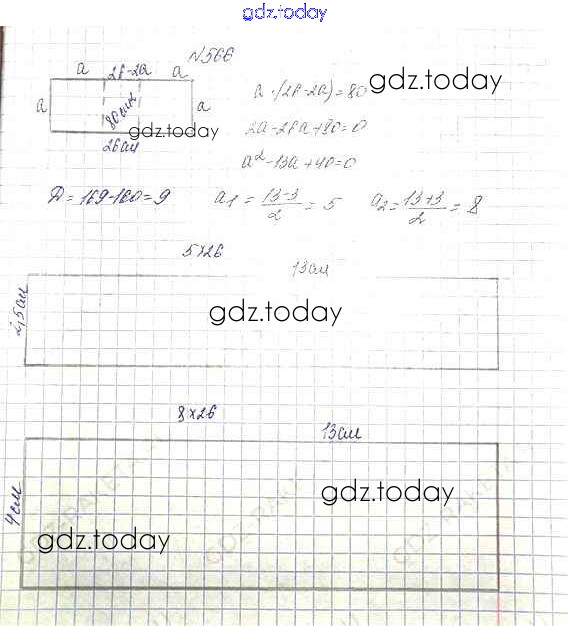 gdz.today
N566
a 26-2a a
a·(26-2a)=80 gdz.today
a 80см² a
gdz.today
2a-26a+80=0
26см
a²-13a+40=0
D=169-160=9 a1=13-3/2=5 a2=13+3/2=8
5×26
13см
2,5см
gdz.today
8×26
13см
4см
gdz.today
gdz.today